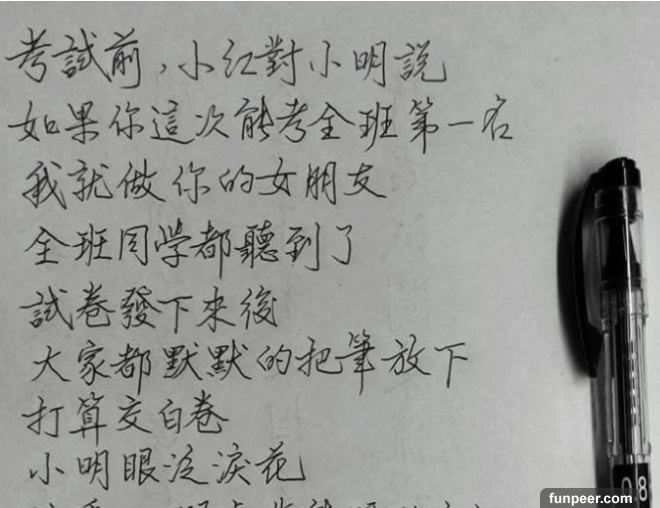 考試前，小红對小明説
如果你這次能考全班第一名
我就做你的女朋友
全班同学都聽到了
試卷發下來後
大家都默默的把筆放下
打算交白卷
小明眼泛淚花
0.8
funpeer.com